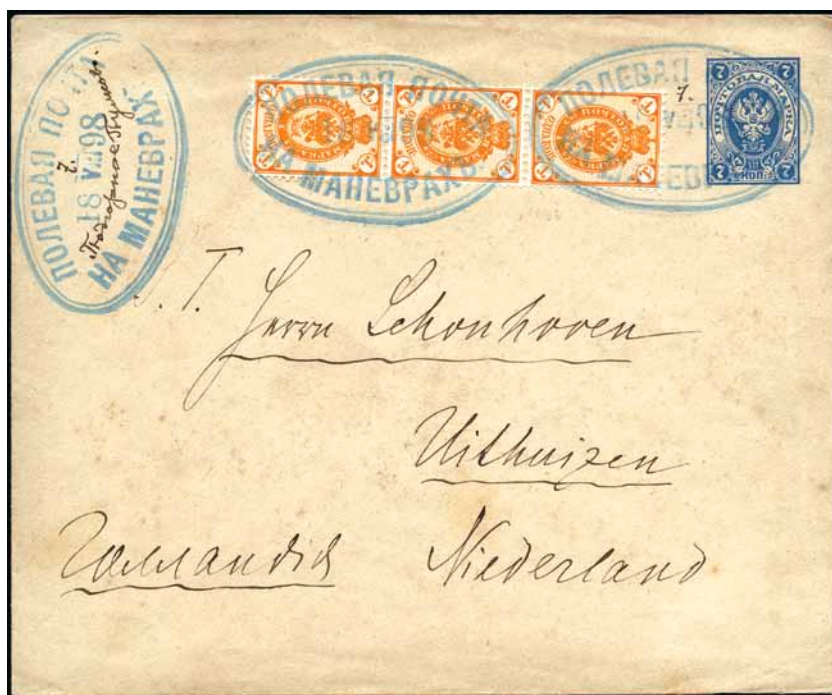 ПОЛЕВАЯ ПОЧТА
7.
18 VIII 98
НА МАНЕВРАХ
ПОЛЕВАЯ ПОЧТА
НА МАНЕВРАХЪ
ПОЛЕВАЯ
7.
7 ПОЧТОВАЯ МАРКА 7
7 КОП 7
S. T.
Herrn Schonhoven
Uithuizen
Голландия
Niederland